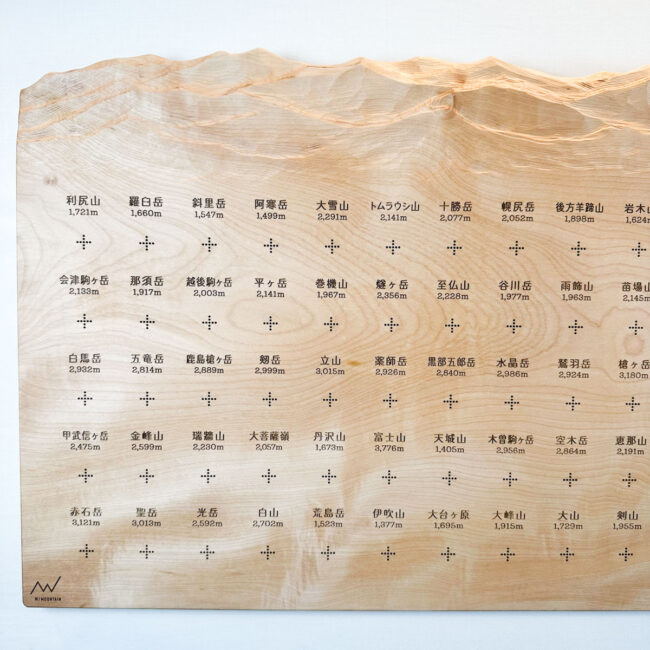 利尻山 羅臼岳 斜里岳 阿寒岳 大雪山 トムラウシ山 十勝岳 幌尻岳 後方羊蹄山 岩木山
1,721m 1,660m 1,547m 1,499m 2,291m 2,141m 2,077m 2,052m 1,898m 1,624m
会津駒ヶ岳 那須岳 越後駒ヶ岳 平ヶ岳 巻機山 燧ヶ岳 至仏山 谷川岳 雨飾山 苗場山
2,133m 1,917m 2,003m 2,141m 1,967m 2,356m 2,228m 1,977m 1,963m 2,145m
白馬岳 五竜岳 鹿島槍ヶ岳 剱岳 立山 薬師岳 黒部五郎岳 水晶岳 鷲羽岳 槍ヶ岳
2,932m 2,814m 2,889m 2,999m 3,015m 2,926m 2,840m 2,986m 2,924m 3,180m
甲武信ヶ岳 金峰山 瑞牆山 大菩薩嶺 丹沢山 富士山 天城山 木曽駒ヶ岳 空木岳 恵那山
2,475m 2,599m 2,230m 2,057m 1,673m 3,776m 1,405m 2,956m 2,864m 2,191m
赤石岳 聖岳 光岳 白山 荒島岳 伊吹山 大台ヶ原 大峰山 大山 剣山
3,121m 3,013m 2,592m 2,702m 1,523m 1,377m 1,695m 1,915m 1,729m 1,955m
W/MOUNTAIN